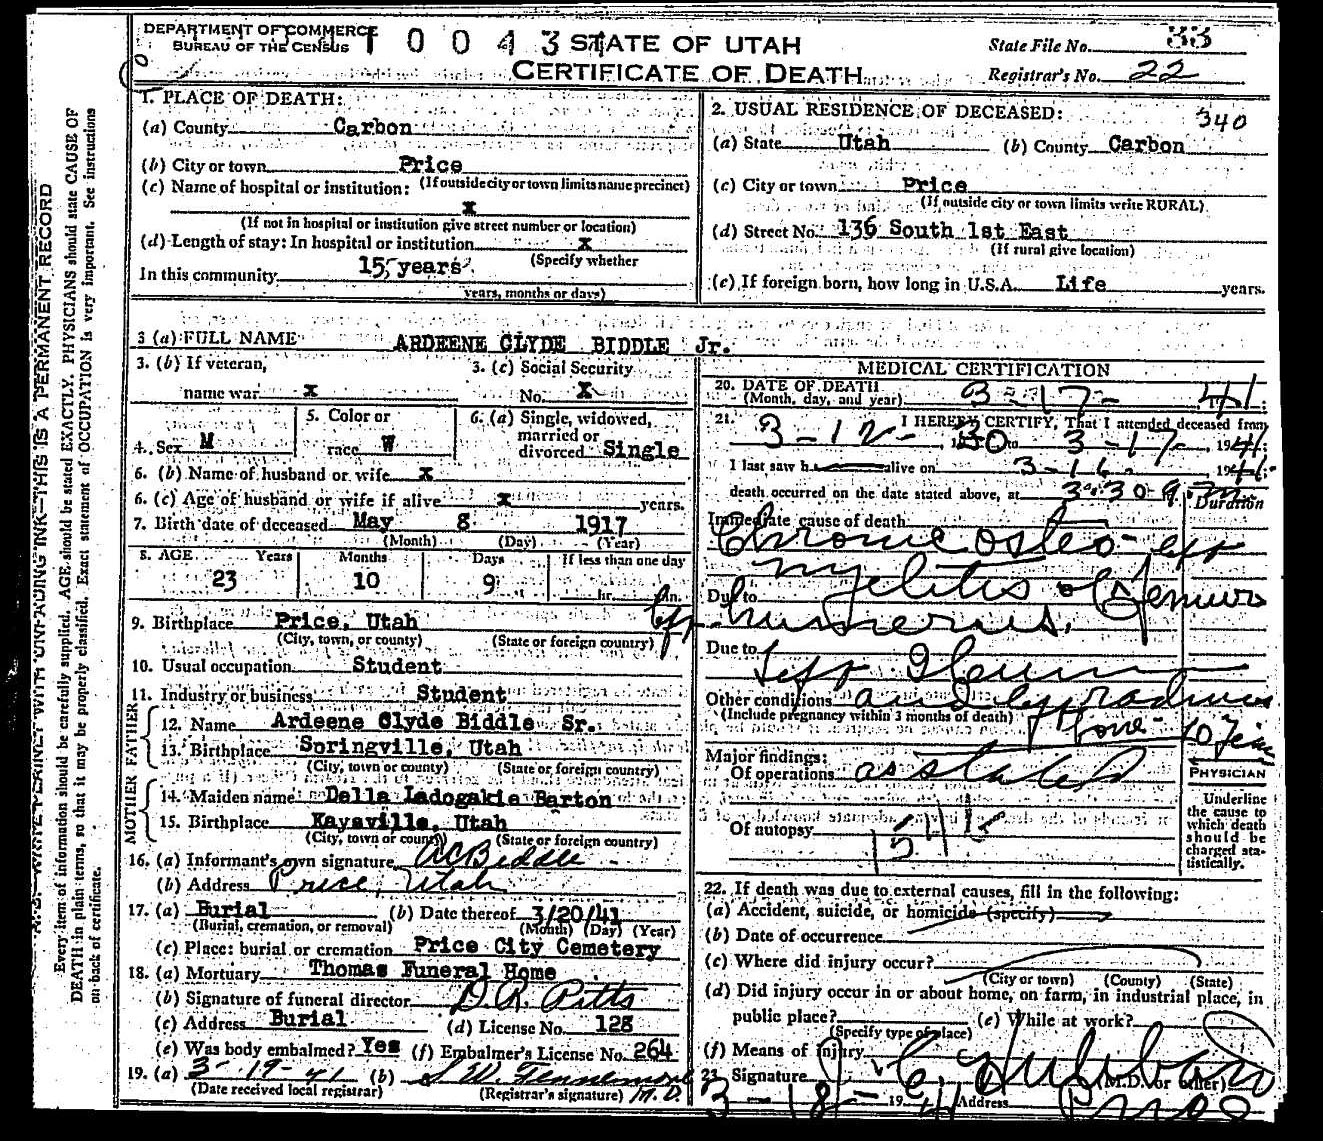 DEPARTMENT OF COMMERCE
BUREAU OF THE CENSUS
10043
STATE OF UTAH
CERTIFICATE OF DEATH
State File No. 33
Registrar's No. 22
1. PLACE OF DEATH:
(a) County Carbon
(b) City or town Price
(If outside city or town limits name precinct)
(c) Name of hospital or institution:
x
(If not in hospital or institution give street number or location)
(d) Length of stay: In hospital or institution x
(Specify whether
In this community 15 years
years, months or days)
2. USUAL RESIDENCE OF DECEASED:
340
(a) State Utah (b) County Carbon
(c) City or town Price
(If outside city or town limits write RURAL)
(d) Street No. 136 South 1st East
(If rural give location)
(e) If foreign born, how long in U.S.A. Life years.
3 (a) FULL NAME ARDEENE CLYDE BIDDLE Jr.
3. (b) If veteran,
name war x
3. (c) Social Security
No. X
4. Sex M
5. Color or
race W
6. (a) Single, widowed,
married or
divorced Single
6. (b) Name of husband or wife x
6. (c) Age of husband or wife if alive x years.
7. Birth date of deceased May 8 1917
(Month) (Day) (Year)
8. AGE Years Months Days If less than one day
23 10 9 hr. min.
9. Birthplace Price, Utah
(City, town, or county) (State or foreign country)
10. Usual occupation Student
11. Industry or business Student
FATHER
12. Name Ardeene Clyde Biddle Sr.
13. Birthplace Springville, Utah
(City, town or county) (State or foreign country)
MOTHER
14. Maiden name Della Ladogakia Barton
15. Birthplace Kaysville, Utah
(City, town or county) (State or foreign country)
16. (a) Informant's own signature AC Biddle
(b) Address Price, Utah
17. (a) Burial (b) Date thereof 3/20/41
(Burial, cremation, or removal) (Month) (Day) (Year)
(c) Place: burial or cremation Price City Cemetery
18. (a) Mortuary Thomas Funeral Home
(b) Signature of funeral director D.R. Pitts
(c) Address Burial (d) License No. 128
(e) Was body embalmed? Yes (f) Embalmer's License No. 264
19. (a) 3-19-41 (b)
(Date received local registrar) (Registrar's signature) M.D.
MEDICAL CERTIFICATION
20. DATE OF DEATH
(Month, day, and year) 3-17-41
21. I HEREBY CERTIFY, That I attended deceased from
3-12- to 3-17-, 1941
I last saw h alive on 3-16- 1941
death occurred on the date stated above, at 3:30 a m.
Duration
Immediate cause of death
Chronic osteo- left
myelitis of femur
Due to humerus.
Due to left Ileum
Other conditions and left radius
(Include pregnancy within 3 months of death)
bone 10 Years
Major findings:
Of operations as stated
Of autopsy
PHYSICIAN
Underline
the cause to
which death
should be
charged sta-
tistically.
22. If death was due to external causes, fill in the following:
(a) Accident, suicide, or homicide (specify)
(b) Date of occurrence
(c) Where did injury occur?
(City or town) (County) (State)
(d) Did injury occur in or about home, on farm, in industrial place, in
public place? (e) While at work?
(Specify type of place)
(f) Means of Injury
23. Signature J. C. Hubbard (M.D. or other)
3-18-1941 Address Price
N.B. WRITE PLAINLY WITH UNFADING INK—THIS IS A PERMANENT RECORD
Every item of information should be carefully supplied. AGE should be stated EXACTLY. PHYSICIANS should state CAUSE OF
DEATH in plain terms, so that it may be properly classified. Exact statement of OCCUPATION is very important. See instructions
on back of certificate.